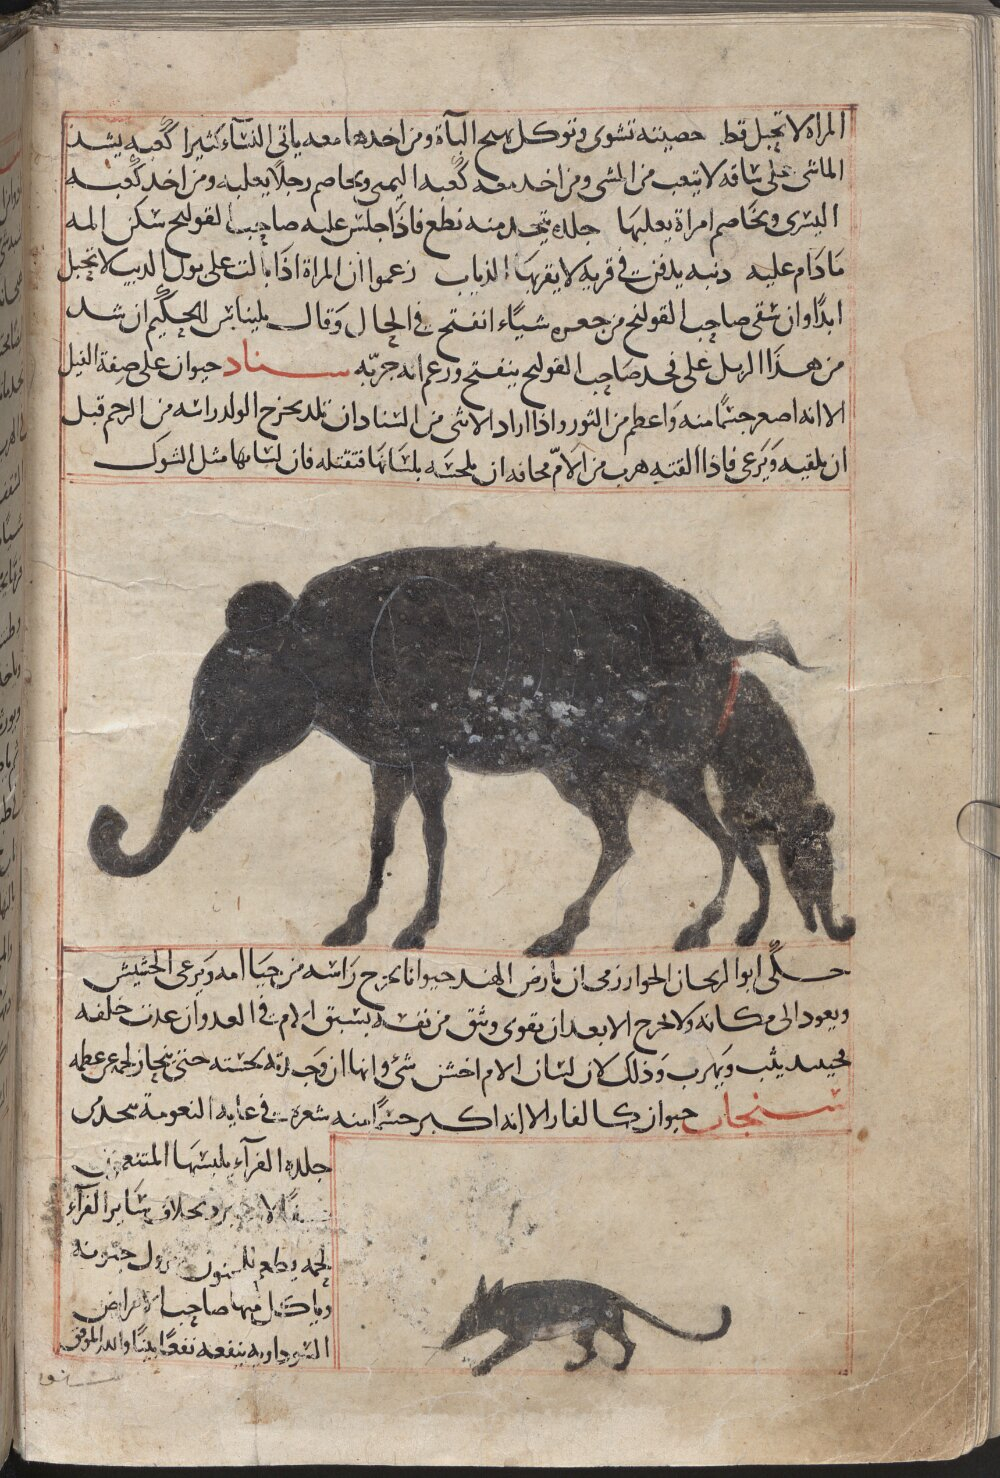 المراة لا تحبل قط حصيته تشوى وتوكل يهيج الباة ومن اخدها معه ياتى النساء كثيرا كعبه يشد
الماشى على ساقه لا يتعب من المشى ومن اخد معه كعبه اليمين وخاصم رجلا يغلبه ومن اخد كعبه
اليسرى وخاصم امراة يغلبها جلده يتخد منه نطع فاذا جلس عليه صاحب القولنج سكن المه
مادام عليه دنبه يدفن فى قرية لا يقربها الذياب زعموا ان المراة اذا بالت على بول الديب لا تحبل
ابدا وان سقى صاحب القولنج من جعره شياء انفتح فى الحال وقال بليناس الحكيم ان شد
من هذا الزبل على فخد صاحب القولنج ينفتح وزعم انه جربه سناد حيوان على صفة الفيل
الا انه اصعر جثما منه واعطم من الثور واذا اراد الانثى من السناد ان تلد يخرج الولد راسه من الرحم قبل
ان يلقيه ويرعى فاذا القته هرب من الام مخافه ان تلحسه بلسانها فتقتله فان لسانها مثل الشوك
حكى ابو الريحان الخوارزمى ان بارض الهند حيوانا يخرج راسه من حيا امه ويرعى الحشيش
ويعود الى مكانه ولا يخرج الا بعد ان يقوى وثق من نفسه يسبق الام فى العدو ان عدت خلفه
فحينيد يثب ويهرب وذلك لان لسان الام اخشن شئ وانها ان وجدته لحسته حتى ينحاز لحمه عن عطمه
سنجاب حيوان كالفار الا انه اكبر جثما منه شعره فى غاية النعومة يتخد من
جلده الفرآء يلبسها المتنعمون
برد بخلاف ساير الفرآء
لحمه يطعم للمجنون يزول جنونه
وياكل منها صاحب الامراض
السوداويه ينفعه نفعا بينا والله الموفق
سنور